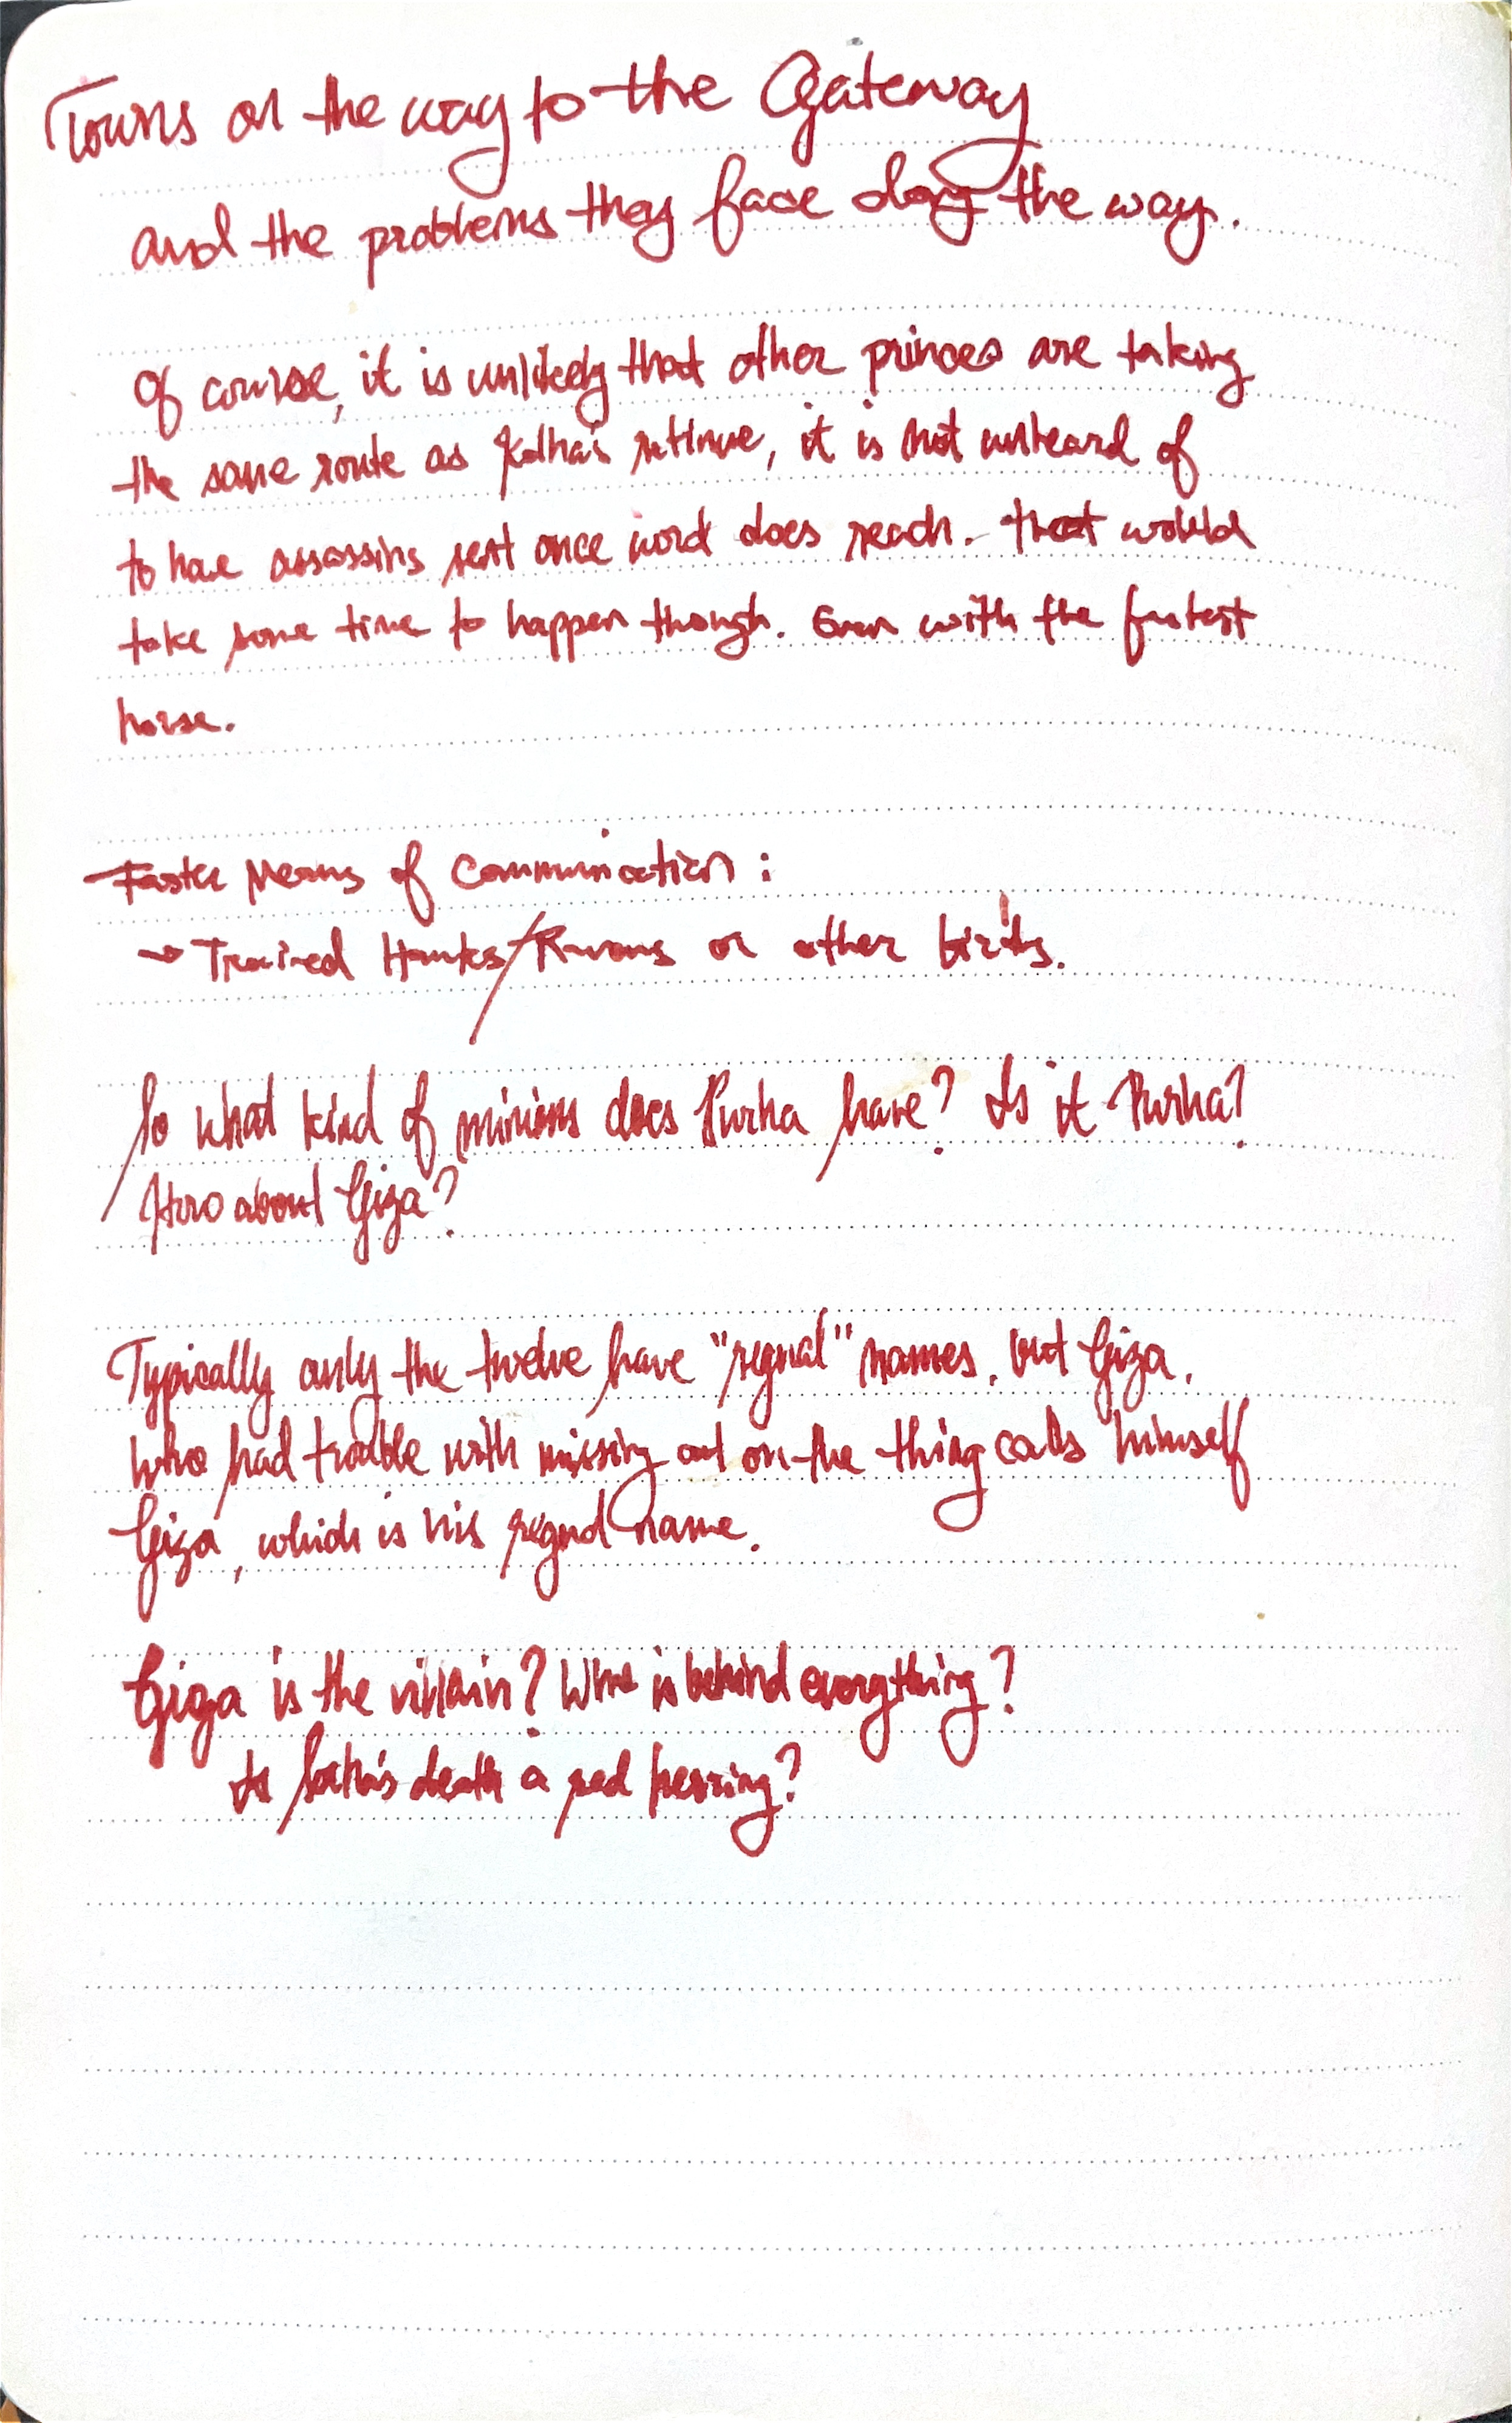 Towns on the way to the Gateway
and the problems they face along the way.
Of course, it is unlikely that other princes are taking
the same route as Kalha's retinue, it is not unheard of
to have assassins sent once word does reach. that would
take some time to happen though. Even with the fastest
horse.
Faster Means of Communication:
→ Trained Hawks/Ravens or other birds.
So what kind of minions does Purha have? Is it Purha?
How about Giza?
Typically only the twelve have "regnal" names. but Giza.
who had trouble with missing out on the thing calls himself
Giza, which is his regnal name.
Giza is the villain? Who is behind everything?
Is death a red herring?